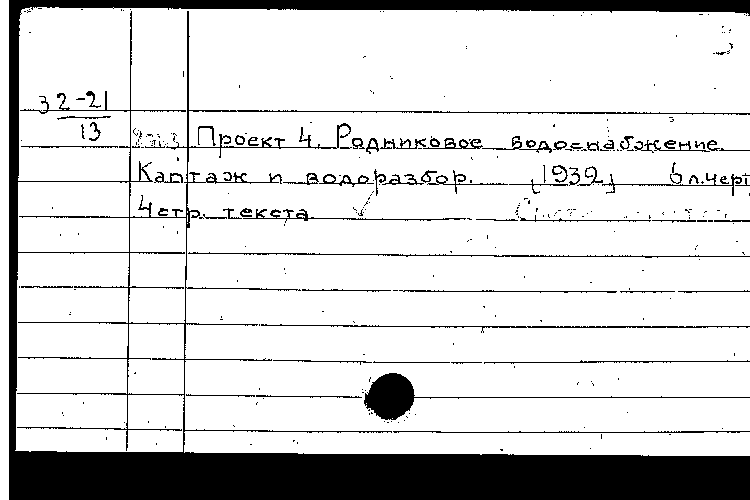 3
32-21
13
Проект 4. Родниковое водоснабжение.
Каптаж и водоразбор. [1939] 6 л.черт
4 стр. текста